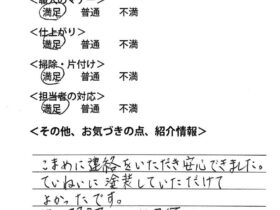 満足 普通 不満
<仕上がり>
満足 普通 不満
<掃除・片付け>
満足 普通 不満
<担当者の対応>
満足 普通 不満
<その他、お気づきの点、紹介情報>
こまめに連絡をいただき安心できました。
ていねいに塗装していただけて
よかったです。